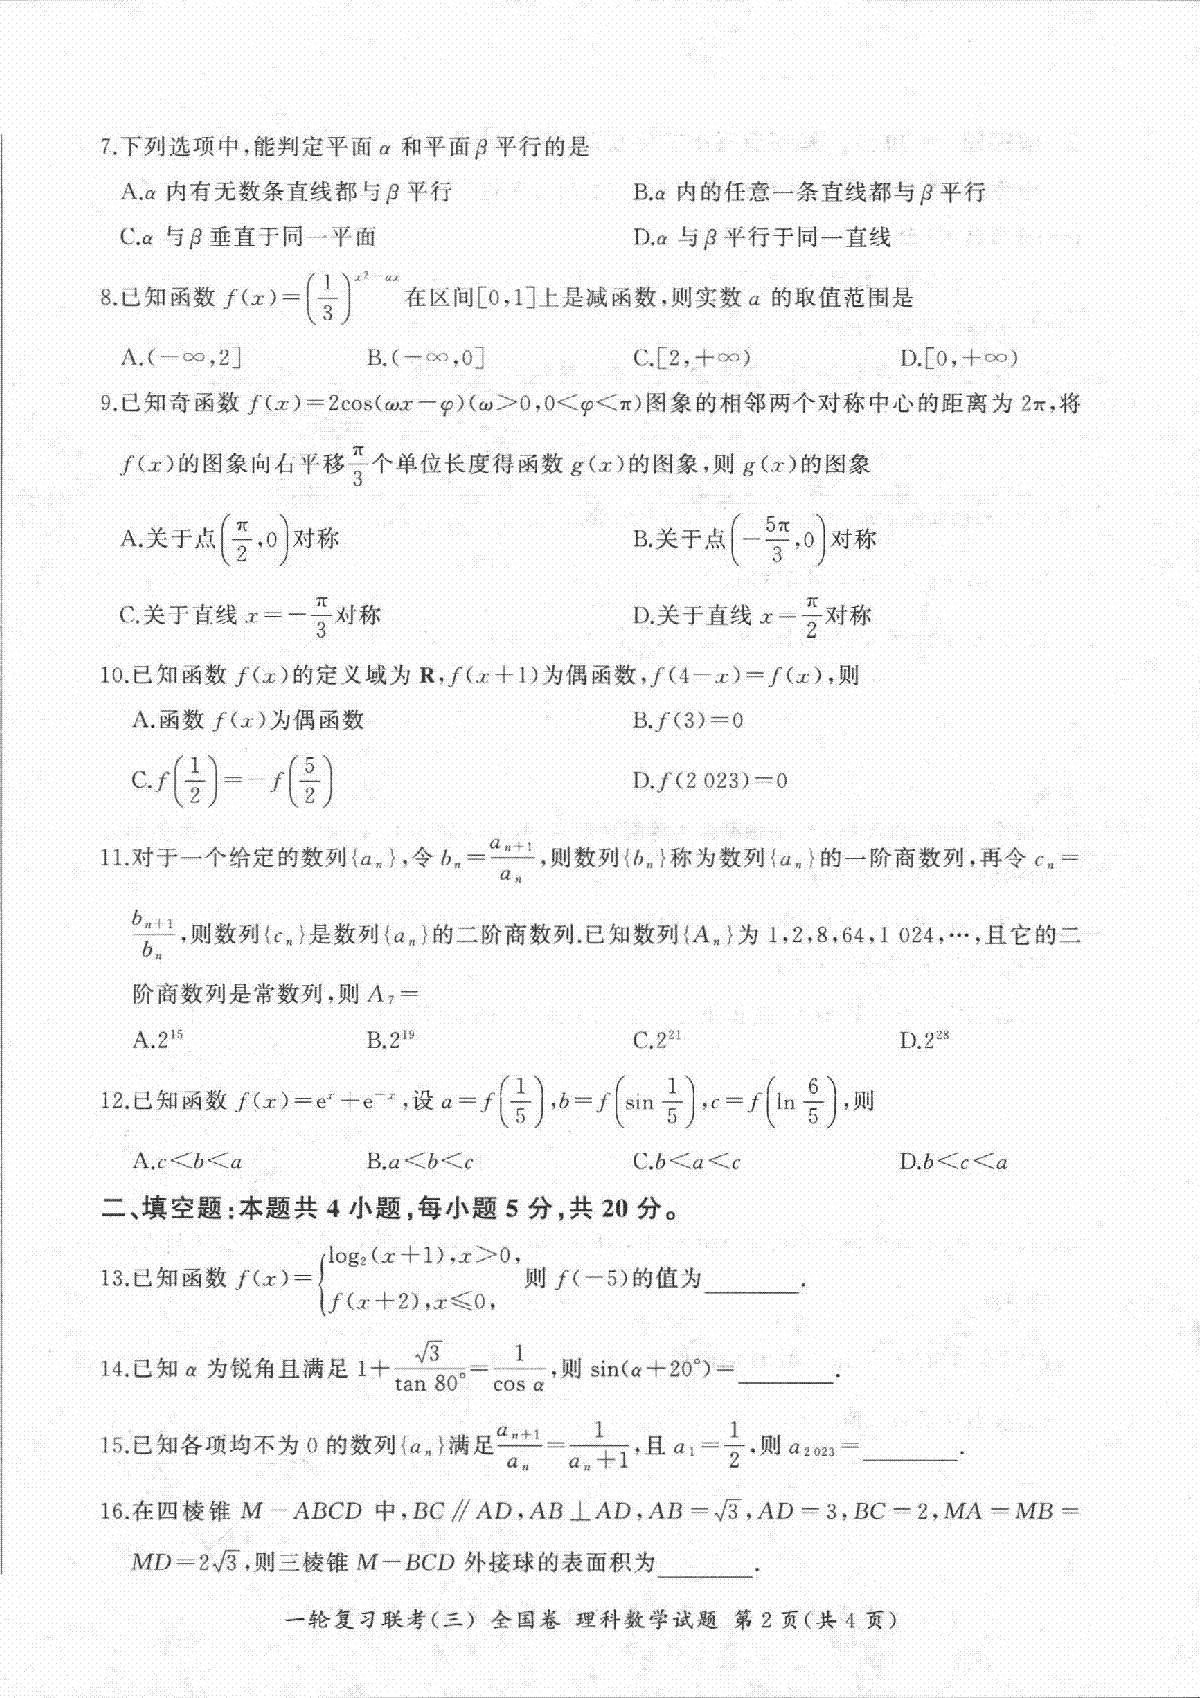 7.下列选项中,能判定平面 α 和平面 β 平行的是
A.α 内有无数条直线都与 β 平行 B.α 内的任意一条直线都与 β 平行
C.α 与 β 垂直于同一平面 D.α 与 β 平行于同一直线
8.已知函数 f(x)=(1/3)^(x²-ax) 在区间[0,1]上是减函数,则实数 a 的取值范围是
A.(-∞,2] B.(-∞,0] C.[2,+∞) D.[0,+∞)
9.已知奇函数 f(x)=2cos(ωx-φ)(ω>0,0<φ<π)图象的相邻两个对称中心的距离为 2π,将
f(x)的图象向右平移 π/3 个单位长度得函数 g(x)的图象,则 g(x)的图象
A.关于点(π/2,0)对称 B.关于点(-5π/3,0)对称
C.关于直线 x=-π/3 对称 D.关于直线 x=π/2 对称
10.已知函数 f(x)的定义域为 R,f(x+1)为偶函数,f(4-x)=f(x),则
A.函数 f(x)为偶函数 B.f(3)=0
C.f(1/2)=-f(5/2) D.f(2 023)=0
11.对于一个给定的数列{aₙ},令 bₙ=aₙ₊₁/aₙ,则数列{bₙ}称为数列{aₙ}的一阶商数列,再令 cₙ=
bₙ₊₁/bₙ,则数列{cₙ}是数列{aₙ}的二阶商数列.已知数列{Aₙ}为 1,2,8,64,1 024,…,且它的二
阶商数列是常数列,则 A₇=
A.2¹⁵ B.2¹⁹ C.2²¹ D.2²⁸
12.已知函数 f(x)=eˣ+e⁻ˣ,设 a=f(1/5),b=f(sin 1/5),c=f(ln 6/5),则
A.c<b<a B.a<b<c C.b<a<c D.b<c<a
二、填空题:本题共 4 小题,每小题 5 分,共 20 分。
13.已知函数 f(x)={log₂(x+1),x>0, f(x+2),x≤0, 则 f(-5)的值为________.
14.已知 α 为锐角且满足 1+√3/tan 80°=1/cos α,则 sin(α+20°)=________.
15.已知各项均不为 0 的数列{aₙ}满足 aₙ₊₁/aₙ=1/(aₙ+1),且 a₁=1/2,则 a₂ ₀₂₃=________.
16.在四棱锥 M-ABCD 中,BC∥AD,AB⊥AD,AB=√3,AD=3,BC=2,MA=MB=
MD=2√3,则三棱锥 M-BCD 外接球的表面积为________.
一轮复习联考(三) 全国卷 理科数学试题 第 2 页(共 4 页)